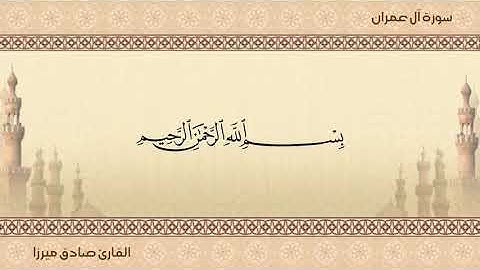 سورة آل عمران
بِسْمِ ٱللَّهِ ٱلرَّحْمَٰنِ ٱلرَّحِيمِ
القارئ صادق ميرزا